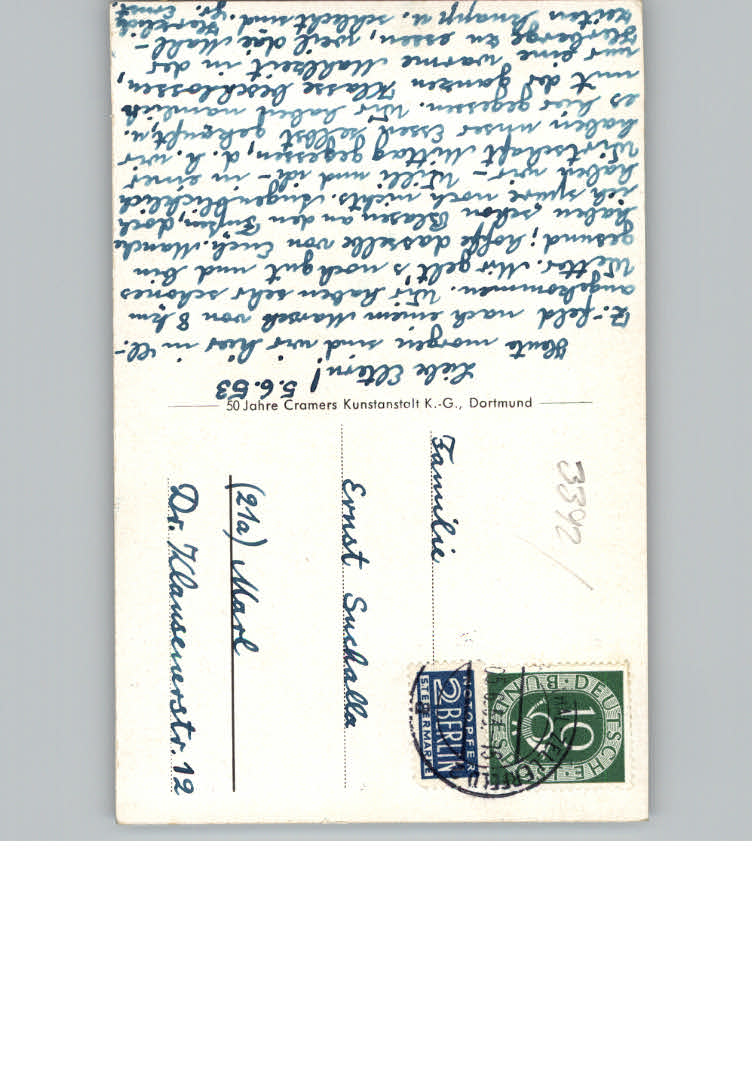 5.6.53
Liebe Eltern!
Heute morgen sind wir hier in Cl.-
Z.-feld nach einem Marsch von 8 km
angekommen. Wir haben sehr schönes
Wetter. Mir geht's noch gut und bin
gesund; hoffe dasselbe von Euch. Manche
haben schon Blasen an den Füßen, doch
ich spüre noch nichts. Augenblicklich
haben wir - Willi und ich - in einer
Wirtschaft Mittag gegessen, d.h. wir
haben unser Essen selbst gekauft, u.
es hier gegessen. Wir haben nämlich
mit der ganzen Klasse beschlossen,
nur eine warme Mahlzeit in der
Herberge zu essen, weil die Mahl-
zeiten knapp u. schlecht sind. Gr. Herzlich
Ernst.
50 Jahre Cramers Kunstanstalt K.-G., Dortmund
Familie
Ernst Suchalla
(21a) Marl
Dr. Klausenerstr. 12
3392
NOTOPFER
2 BERLIN
STEUERMARKE
DEUTSCHE BUNDESPOST
10
ZELLERFELD